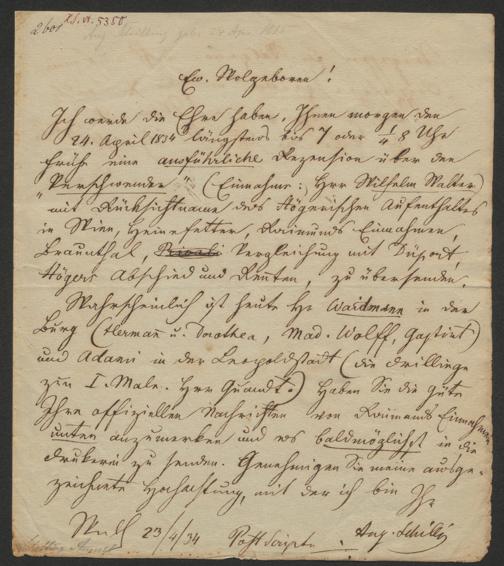 2601 I.N. 5358
Aug. Schilling geb. 24 Apr.
Ew. Wolgeboren!
Ich werde die Ehre haben, Ihnen morgen den
24. April 1834 längstens bis 7 oder ¼ 8 Uhr
frühe eine ausführliche Rezension über den
"Verschwender" (Einnahme: Herr Wilhelm Walter)
mit Rücksichtname des Högerischen Aufenthaltes
in Wien, Heinefetter, Raimunds Einnahmen,
Braunthal, Vergleichung mit Düport,
Högers Abschied und Renten, zu übersenden.
Wahrscheinlich ist heute H. Waidmann in der
Burg (Hermann u. Dorothea, Mad. Wolff, Gastirt)
und Adami in der Leopoldstadt (die Drillinge
zum I. Male. Herr Quandt.) Haben Sie die Güte
Ihre offiziellen Nachrichten von Raimunds Einnahmen
unten anzumerken und es baldmöglichst in die
Druckerei zu senden. Genehmigen Sie meine ausge-
zeichnete Hochachtung, mit der ich bin Ihr
23/4/34 Postscripte. Aug. Schilling
Schilling August